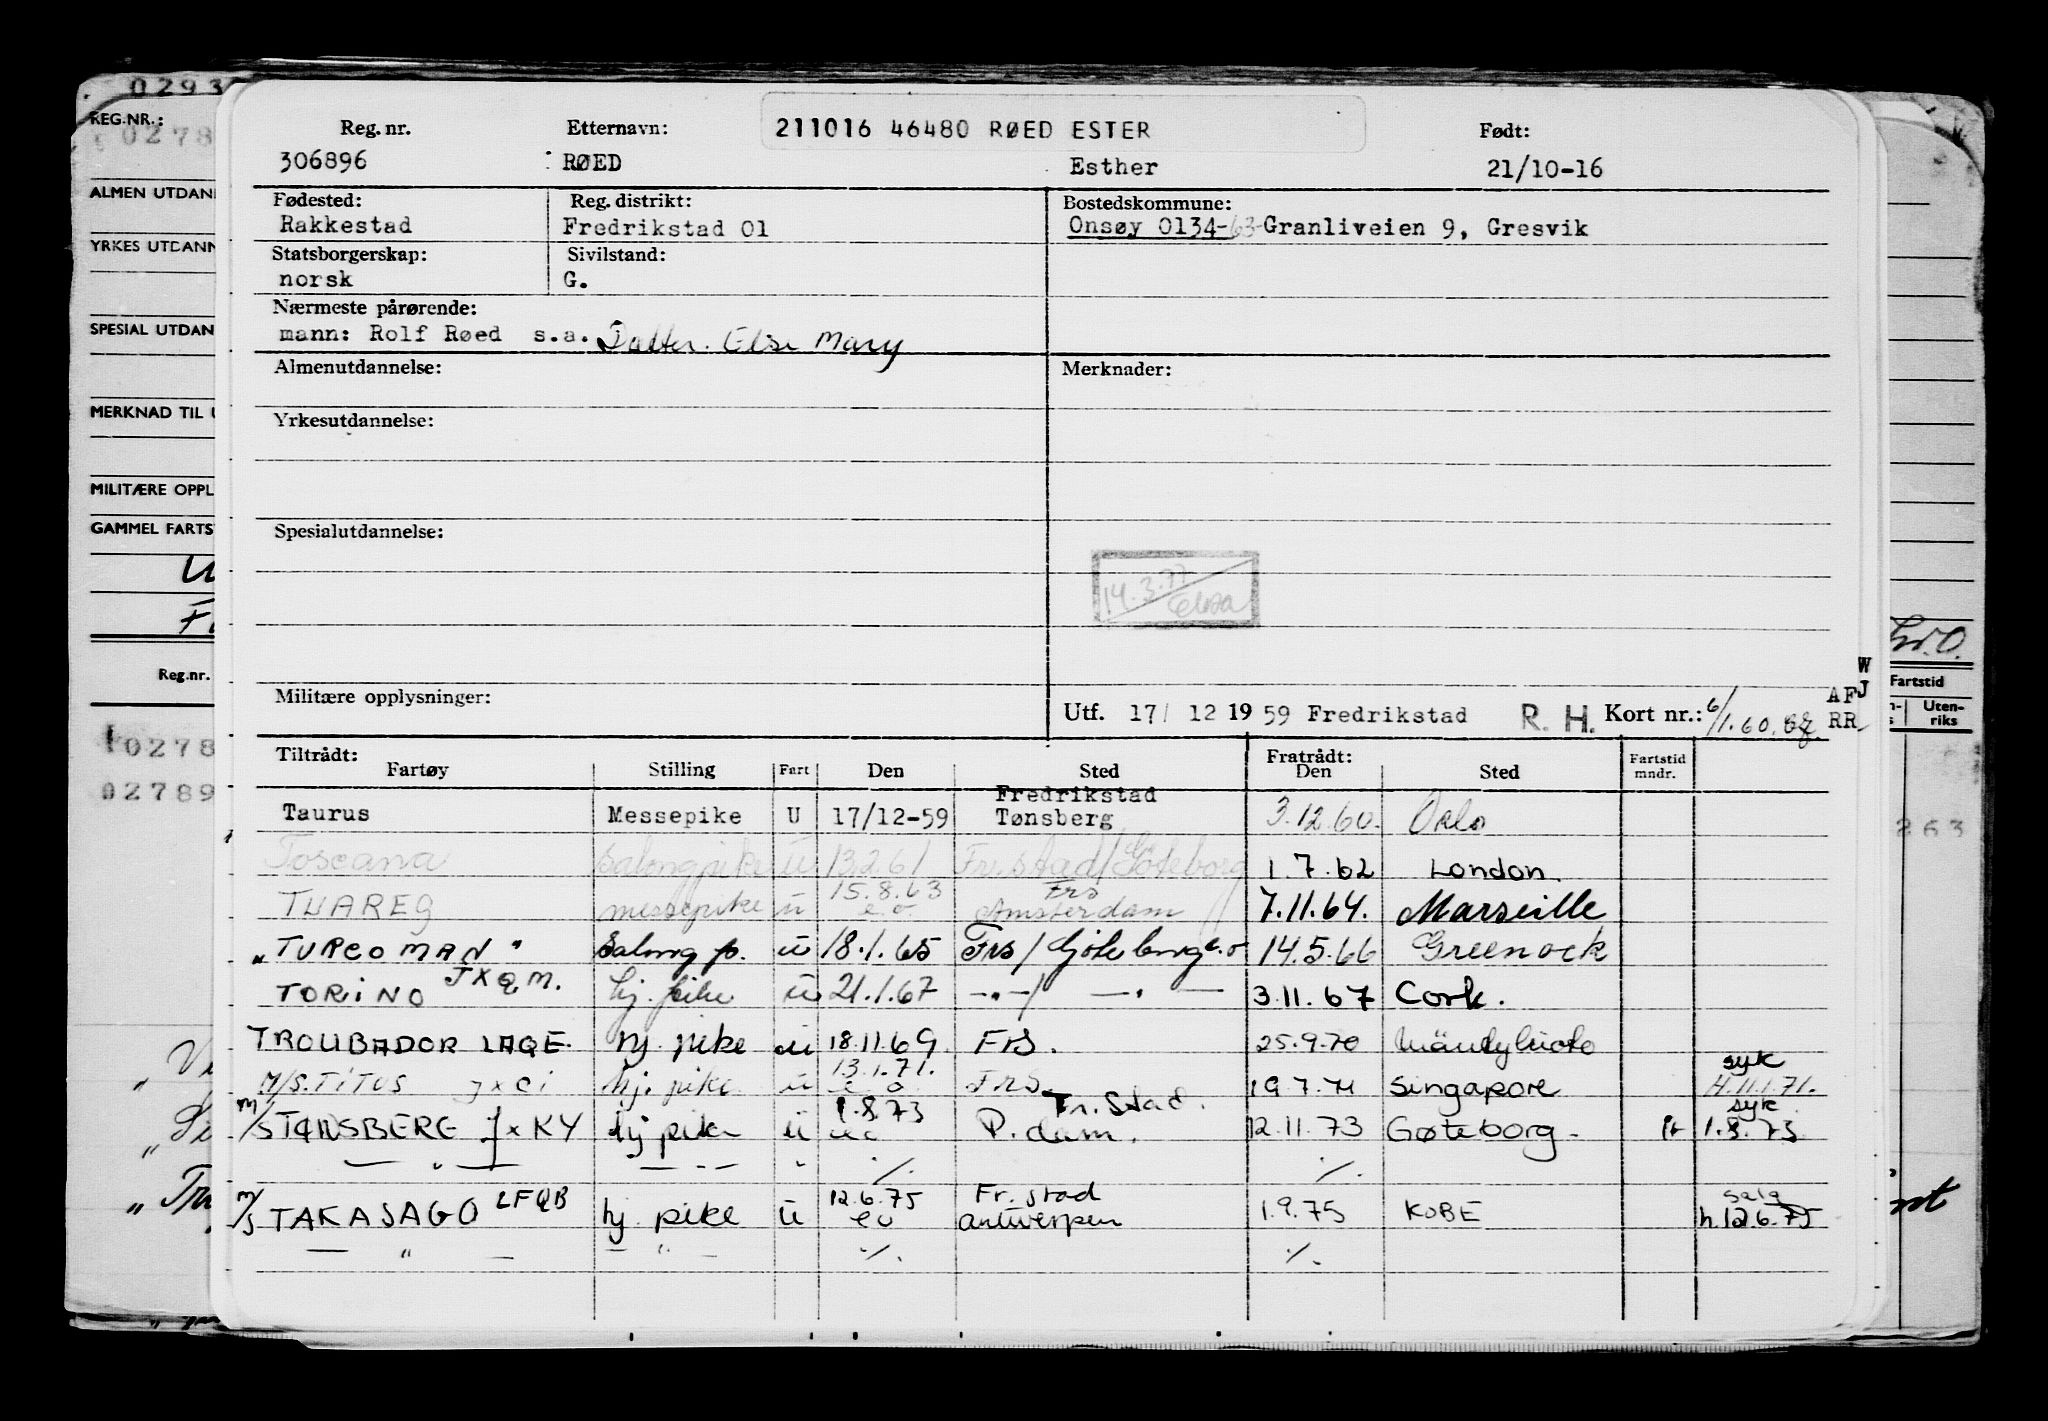 0293
REG.NR.:
0278
Reg. nr. Etternavn: 211016 46480 RØED ESTER Født:
306896 RØED Esther 21/10-16
ALMEN UTDAN
Fødested: Reg. distrikt: Bostedskommune:
Rakkestad Fredrikstad 01 Onsøy 0134-63-Granliveien 9, Gresvik
YRKES UTDANN
Statsborgerskap: Sivilstand:
norsk G.
Nærmeste pårørende:
SPESIAL UTDAN
mann: Rolf Røed s.a. Datter. Else Mary
Almenutdannelse: Merknader:
MERKNAD TIL U
Yrkesutdannelse:
MILITÆRE OPPL
GAMMEL FARTS
Spesialutdannelse:
14.3.77
Reg.nr.
Fartstid
Uten-
riks
W
J
Militære opplysninger:
Utf. 17/ 12 19 59 Fredrikstad R. H. Kort nr.: 6/1.60. AF
RR
Tiltrådt: Fratrådt:
Fartøy Stilling Fart Den Sted Den Sted Fartstid mndr.
0278
02789
263
Taurus Messepike U 17/12-59 Fredrikstad Tønsberg 3.12.60. Oslo
Toscana Salongpike u 13.2.61 Fr.stad/Göteborg 1.7.62 London.
TUAREG messepike u 15.8.63 e.o Frs Amsterdam 7.11.64. Marseille
"TURCOMAN" Salong p. u 18.1.65 Frs/Göteborg e.o 14.5.66 Greenock
TORINO JXQM. hj. pike u 21.1.67 —.—/ —.— 3.11.67 Cork.
TROUBADOR LAQE. hj. pike u 18.11.69. FRS. 25.9.70 Mäntyluoto
M/S. TITUS JXCI hj. pike u 13.1.71. e o FRS. 19.7.71 Singapore syk H.11.1.71.
M/S TØNSBERG JXKY hj pike u 1.8.73 eo Fr.stad. P. dam. 12.11.73 Gøteborg. syk 1.8.73
— " — — " — " ./. ./.
M/S TAKASAGO LFQB hj. pike u 12.6.75 eo Fr.stad antwerpen 1.9.75 KOBE h.12.6.75
— " — — " — ./. ./.